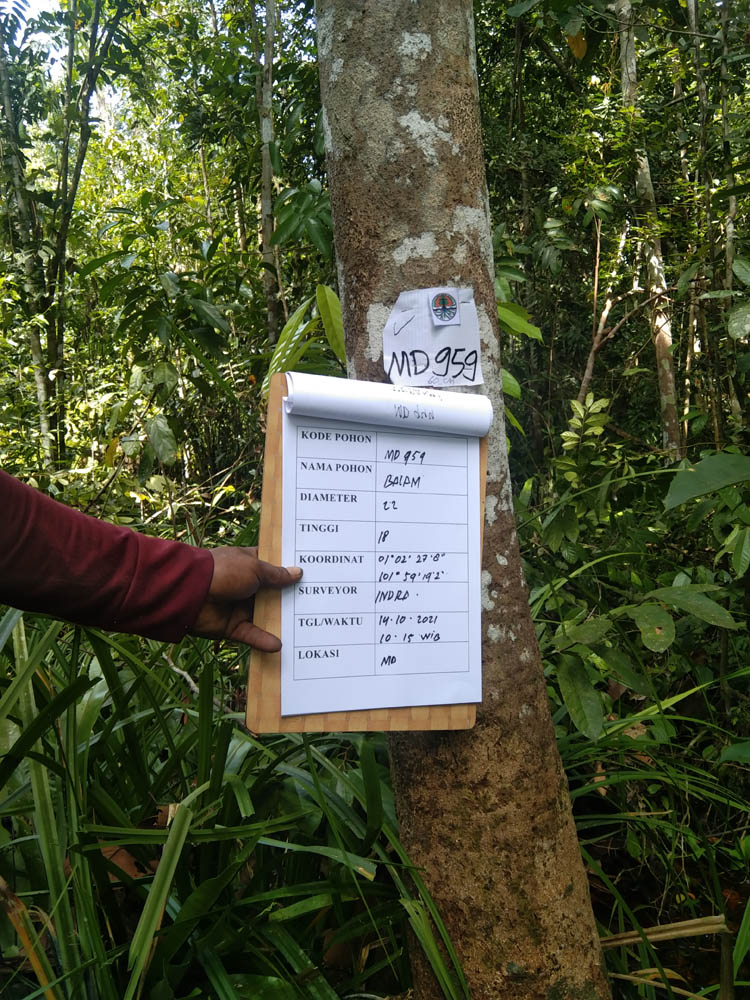 MD 959
60 cm
KODE POHON MD 959
NAMA POHON BALAM
DIAMETER 22
TINGGI 18
KOORDINAT 01° 02' 27.8"
101° 59' 19.2"
SURVEYOR INDRA.
TGL/WAKTU 14.10.2021
10.15 WIB
LOKASI MD